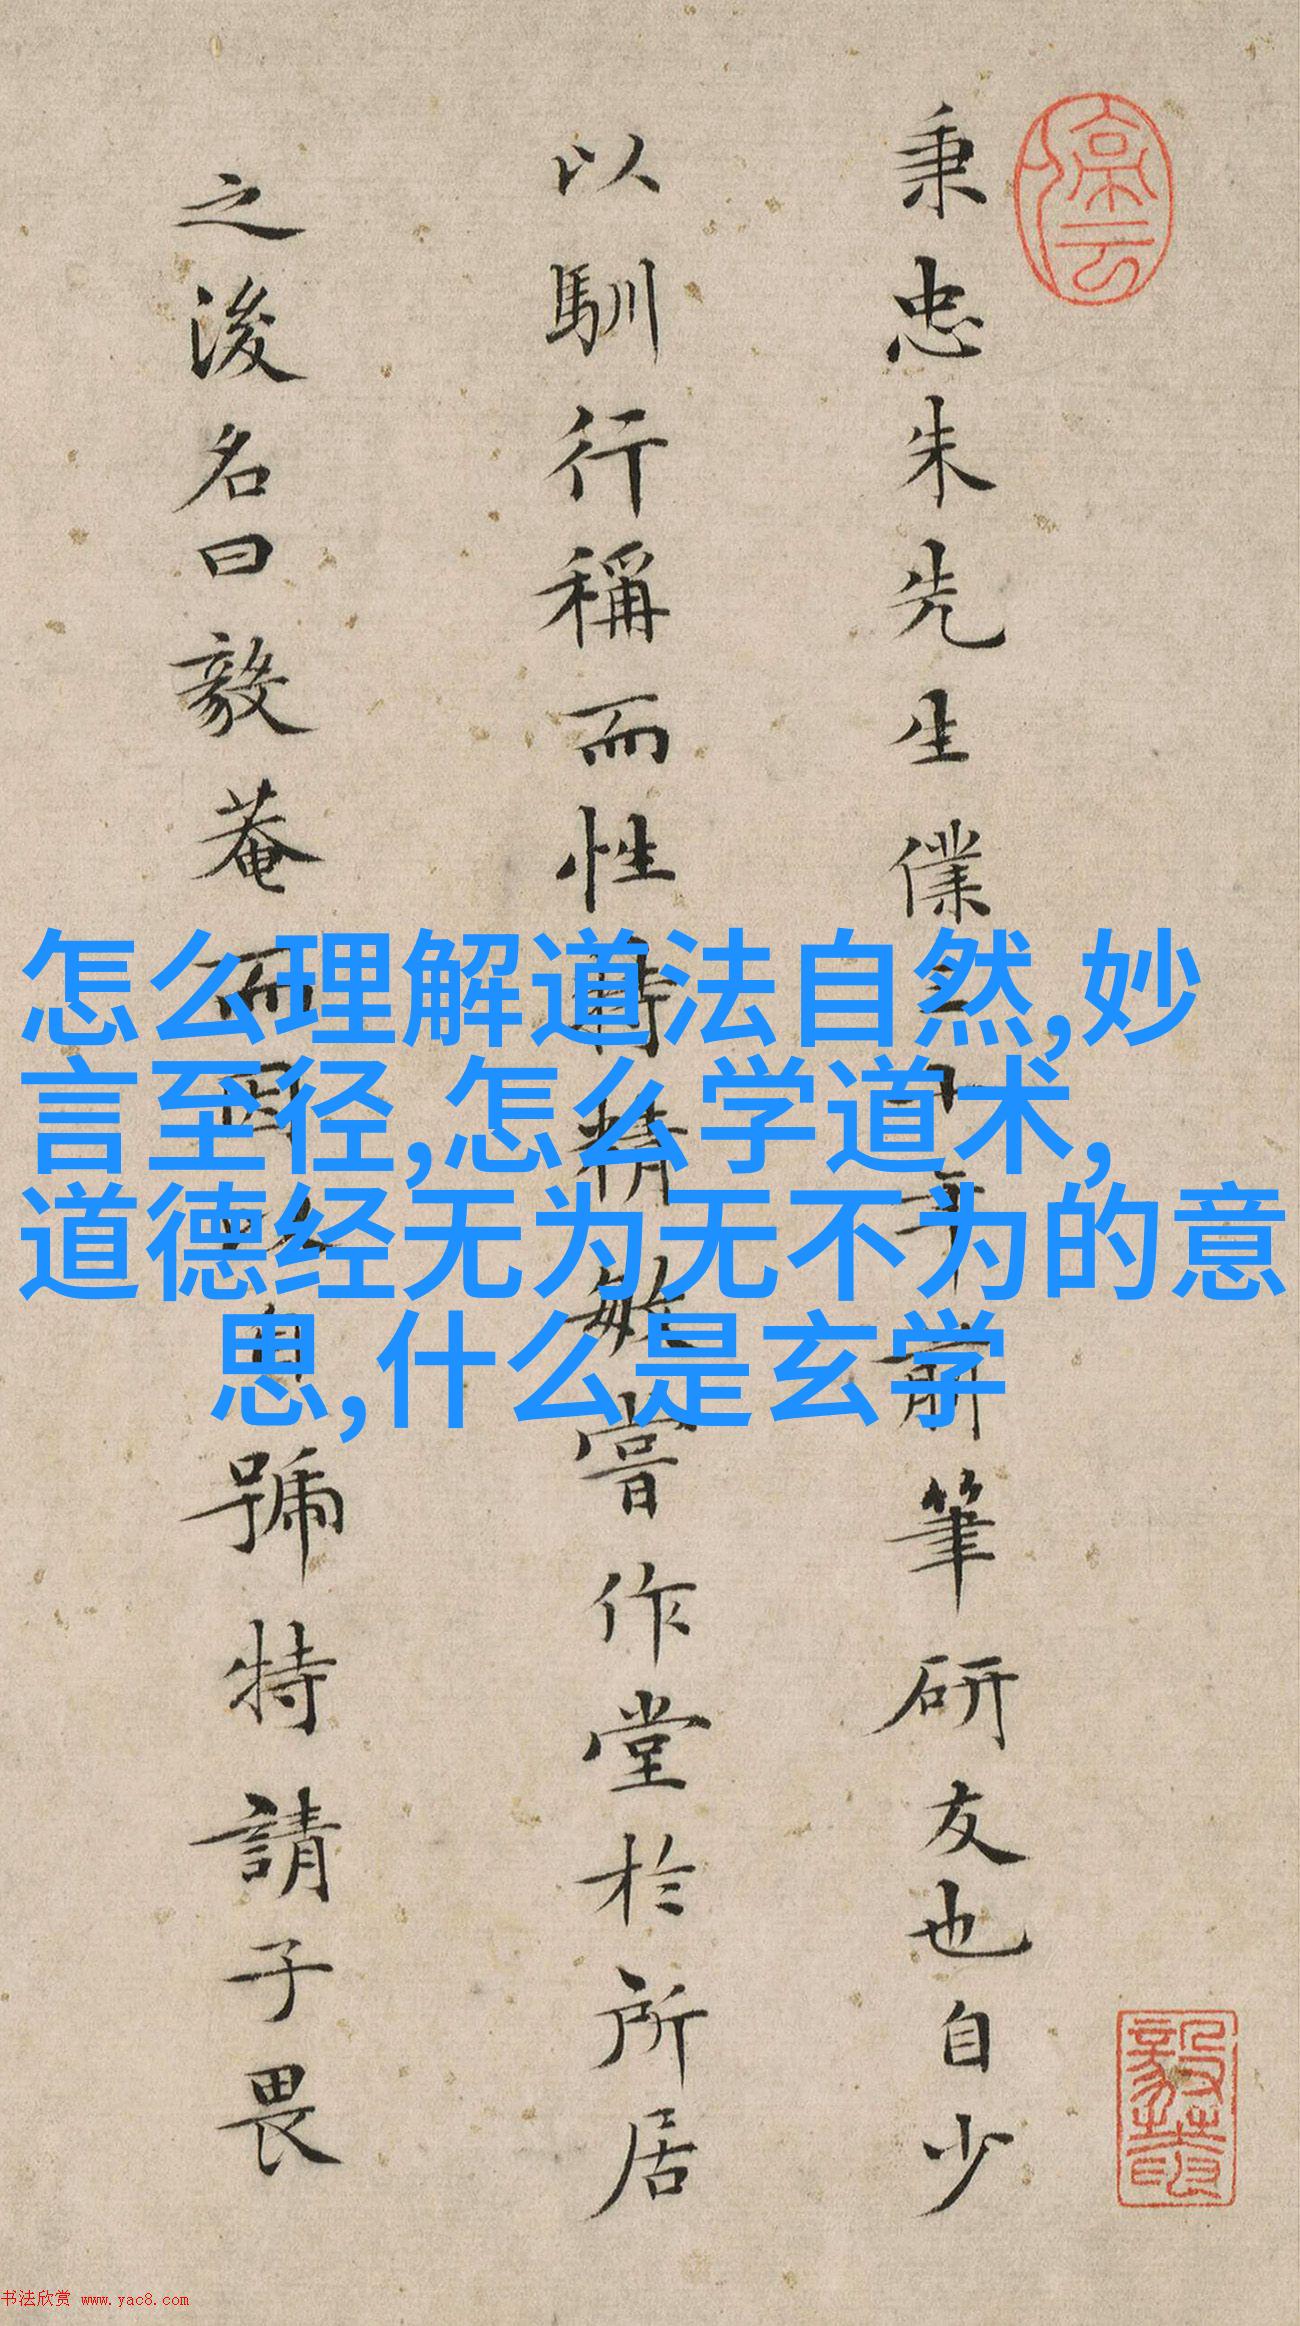 停云
秉忠朱先生僕十年前筆研友也自少
以馴行稱而性特精敏嘗作堂於所居
之後名曰毅菴而因以自號特請子畏
怎么理解道法自然,妙
言至径,怎么学道术,
道德经无为无不为的意
思,什么是玄学
书法欣赏 www.yac8.com